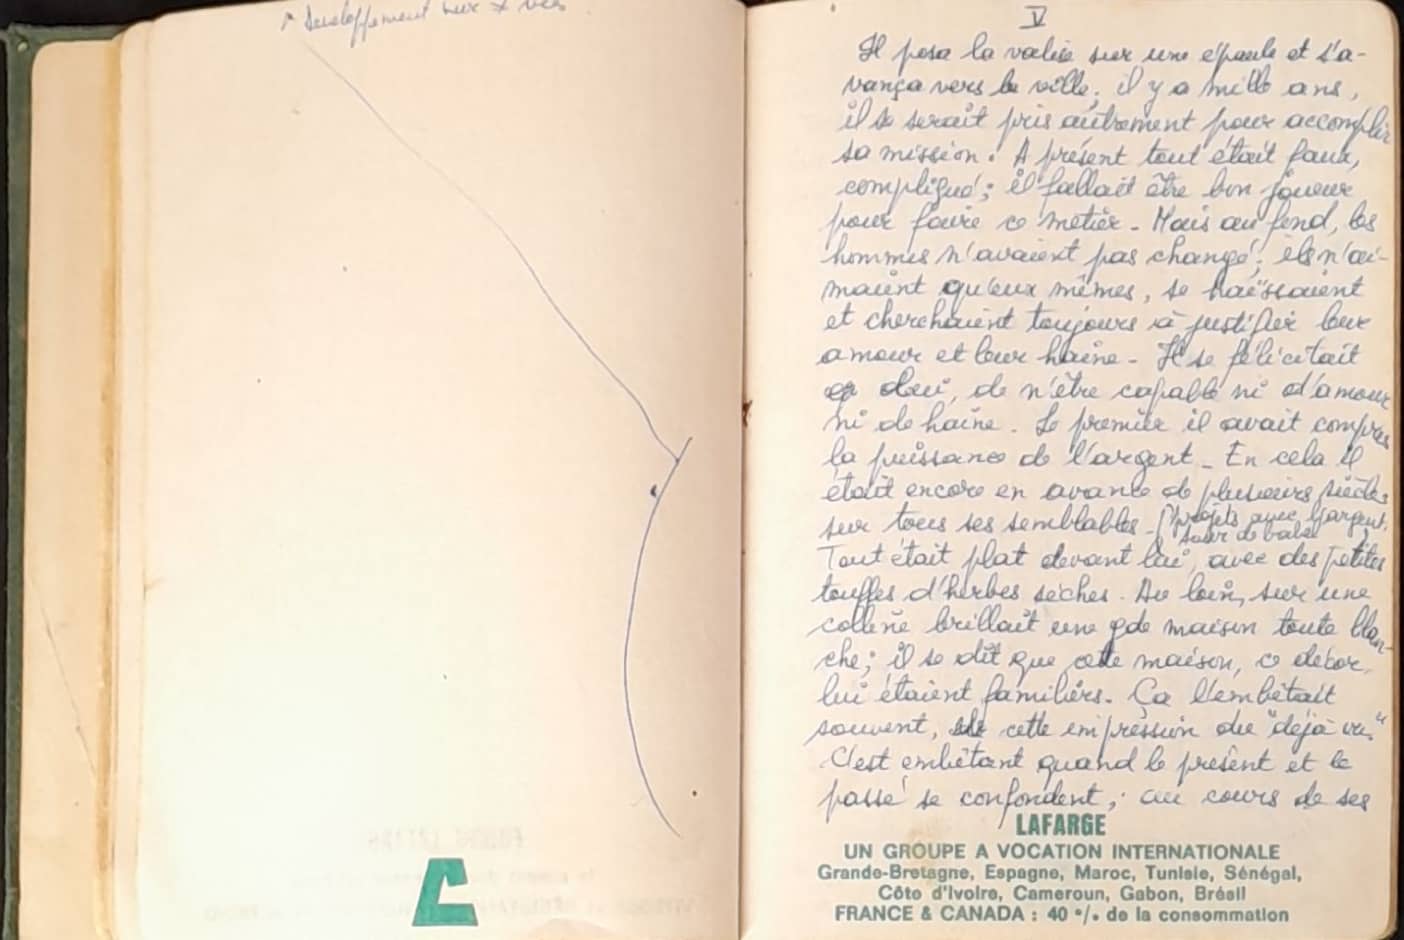 Developpement sur
V
Il posa la valise sur une épaule et s'a-
vança vers la ville; il y a mille ans,
il se serait pris autrement pour accomplir
sa mission. A présent tout était faux,
compliqué; il fallait être bon joueur
pour faire ce métier - Mais au fond, les
hommes n'avaient pas changé; ils n'ai-
maient qu'eux mêmes, se haïssaient
et cherchaient toujours à justifier leur
amour et leur haine - Il se félicitait
lui, de n'être capable ni d'amour
ni de haine. Le premier il avait compris
la puissance de l'argent - En cela il
était encore en avance de plusieurs siècles
sur tous ses semblables - (projets avec l'argent,
Tout était plat devant lui, avec des petites
touffes d'herbes sèches. Au loin, sur une
colline brillait une gde maison toute blan-
che; il se dit que cette maison, ce décor,
lui étaient familiers. Ça l'embêtait
souvent, cette impression du "déjà vu"
C'est embêtant quand le présent et le
passé se confondent; au cours de ses
LAFARGE
UN GROUPE A VOCATION INTERNATIONALE
Grande-Bretagne, Espagne, Maroc, Tunisie, Sénégal,
Côte d'Ivoire, Cameroun, Gabon, Brésil
FRANCE & CANADA : 40 °/. de la consommation